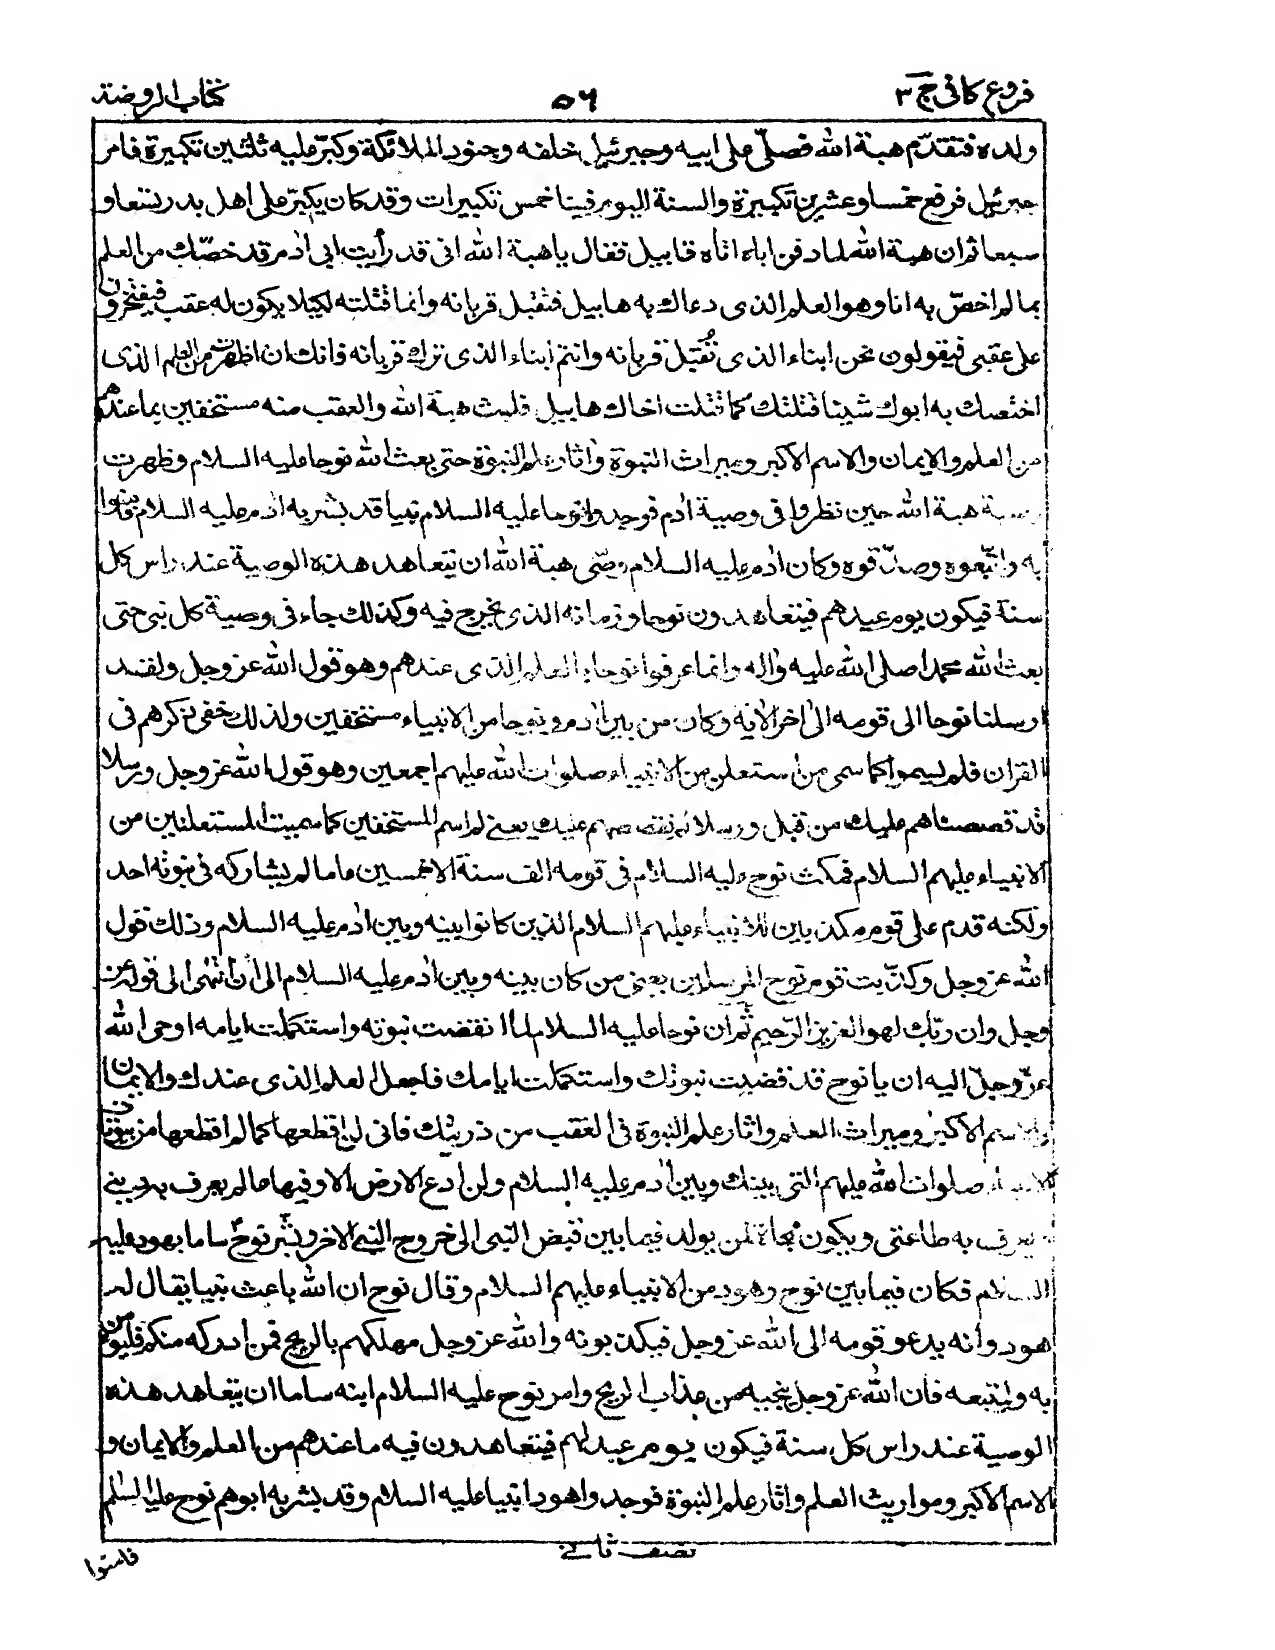 فروع کافی ج ۳
۵۶
کتاب الروضة
ولده فتقدّم هبة الله فصلّى على ابيه وجبرئيل خلفه وجنود الملائكة وكبّر عليه ثلثين تكبيرة فامر
جبرئيل فرفع خمسا وعشرين تكبيرة والسنة اليوم فينا خمس تكبيرات وقد كان يكبّر على اهل بدر تسعا و
سبعا ثم ان هبة الله لما دفن اباه اتاه قابيل فقال يا هبة الله انى قد رأيت ابى ادم قد خصّك من العلم
بما لم اخصّ به انا وهو العلم الذى دعا به اخوك هابيل فتقبل قربانه وانما قتلته لكيلا يكون له عقب فيفتخرون
على عقبى فيقولون نحن ابناء الذى تُقُبّل قربانه وانتم ابناء الذى ترك قربانه فانك ان اظهرت من العلم الذى
اختصك به ابوك شيئا قتلتك كما قتلت اخاك هابيل فلبث هبة الله والعقب منه مستخفين بما عندهم
من العلم والايمان والاسم الاكبر وميراث النبوة واثار علم النبوة حتى بعث الله نوحا عليه السلام وظهرت
وصية هبة الله حين نظروا فى وصية ادم فوجدوا نوحا عليه السلام نبيا قد بشر به ادم عليه السلام فامنوا
به واتّبعوه وصدّقوه وكان ادم عليه السلام وصّى هبة الله ان يتعاهد هذه الوصية عند راس كل
سنة فيكون يوم عيدهم فيتعاهدون نوحا وزمانه الذى يخرج فيه وكذلك جاء فى وصية كل نبى حتى
بعث الله محمدا صلى الله عليه واله وانما عرفوا نوحا بالعلم الذى عندهم وهو قول الله عز وجل ولقد
ارسلنا نوحا الى قومه الى اخر الاية وكان من بين ادم ونوحا من الانبياء مستخفين ولذلك خفى ذكرهم فى
القران فلم يسموا كما سمى من استعلن من الانبياء صلوات الله عليهم اجمعين وهو قول الله عز وجل ورسلا
قد قصصناهم عليك من قبل ورسلا لم نقصصهم عليك يعنى لم اسم المستخفين كما سميت المستعلنين من
الانبياء عليهم السلام فمكث نوح عليه السلام فى قومه الف سنة الا خمسين عاما لم يشاركه فى نبوته احد
ولكنه قدم على قوم مكذبين للانبياء عليهم السلام الذين كانوا بينه وبين ادم عليه السلام وذلك قول
الله عز وجل وكذّبت قوم نوح المرسلين يعنى من كان بينه وبين ادم عليه السلام الى ان انتهى الى قوله عز
وجل وان ربّك لهو العزيز الرّحيم ثم ان نوحا عليه السلام لما انقضت نبوته واستكملت ايامه اوحى الله
عزّ وجلّ اليه ان يا نوح قد قضيت نبوتك واستكملت ايامك فاجعل العلم الذى عندك والايمان
والاسم الاكبر وميراث العلم واثار علم النبوة فى العقب من ذريتك فانى لن اقطعها كما لم اقطعها من بيوتات
الانبياء صلوات الله عليهم التى بينك وبين ادم عليه السلام ولن ادع الارض الا وفيها عالم يعرف به دينى
وتعرف به طاعتى ويكون نجاة لمن يولد فيما بين قبض النبى الى خروج النبى الاخر وبشّر نوح ساما بهود عليه
السلام فكان فيما بين نوح وهود من الانبياء عليهم السلام وقال نوح ان الله باعث نبيا يقال له
هود وانه يدعو قومه الى الله عز وجل فيكذبونه والله عز وجل مهلكهم بالريح فمن ادركه منكم فليؤمن
به وليتبعه فان الله عز وجل ينجيه من عذاب الريح وامر نوح عليه السلام ابنه ساما ان يتعاهد هذه
الوصية عند راس كل سنة فيكون يوم عيد لهم فيتعاهدون فيه ما عندهم من العلم والايمان و
الاسم الاكبر ومواريث العلم واثار علم النبوة فوجدوا هودا نبيا عليه السلام وقد بشر به ابوهم نوح عليه السلم
نصف ثانے
فامنوا